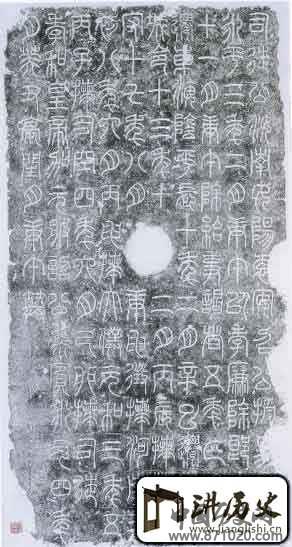 司徒公汝南女陽袁安召公授
永平三年二月庚午以孝廉除郎
十一月庚午除給事謁者五年正
遷東海陰平長十年二月辛巳遷
城令十三年十二月丙辰拜
十七年八月庚申徵拜河
月丙申拜太僕元和三年五
丙子拜司空四年六月己卯拜司徒
孝和皇帝加元服詔公為賓永元四年
月癸丑薨閏月庚午葬
讲历史
www.jianglishi.cn
www.871020.com